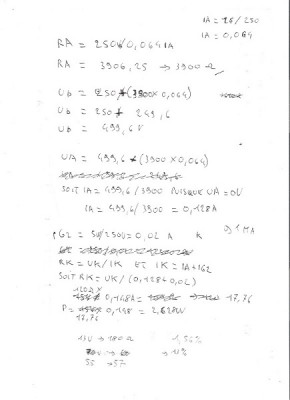 IA = 16 / 250
IA = 0,064
RA = 250V/0,064IA
RA = 3906,25 → 3900 Ω
UB = 250 + (3900 x 0,064)
UB = 250 + 249,6
UB = 499,6 V
UA = 499,6 - (3900 x 0,064)
SOIT IA = 499,6 / 3900 PUISQUE UA = 0V
IA = 499,6 / 3900 = 0,128A
IG2 = 5V/250 = 0,02 A
RK = UK / IK ET IK = IA + IG2
SOIT RK = UK / (0,128 + 0,02)
0,148A =
17,76
P = 0,148 = 2,628W
17,76
13V → 180 Ω
1,56%
→ 11%
55 → 57